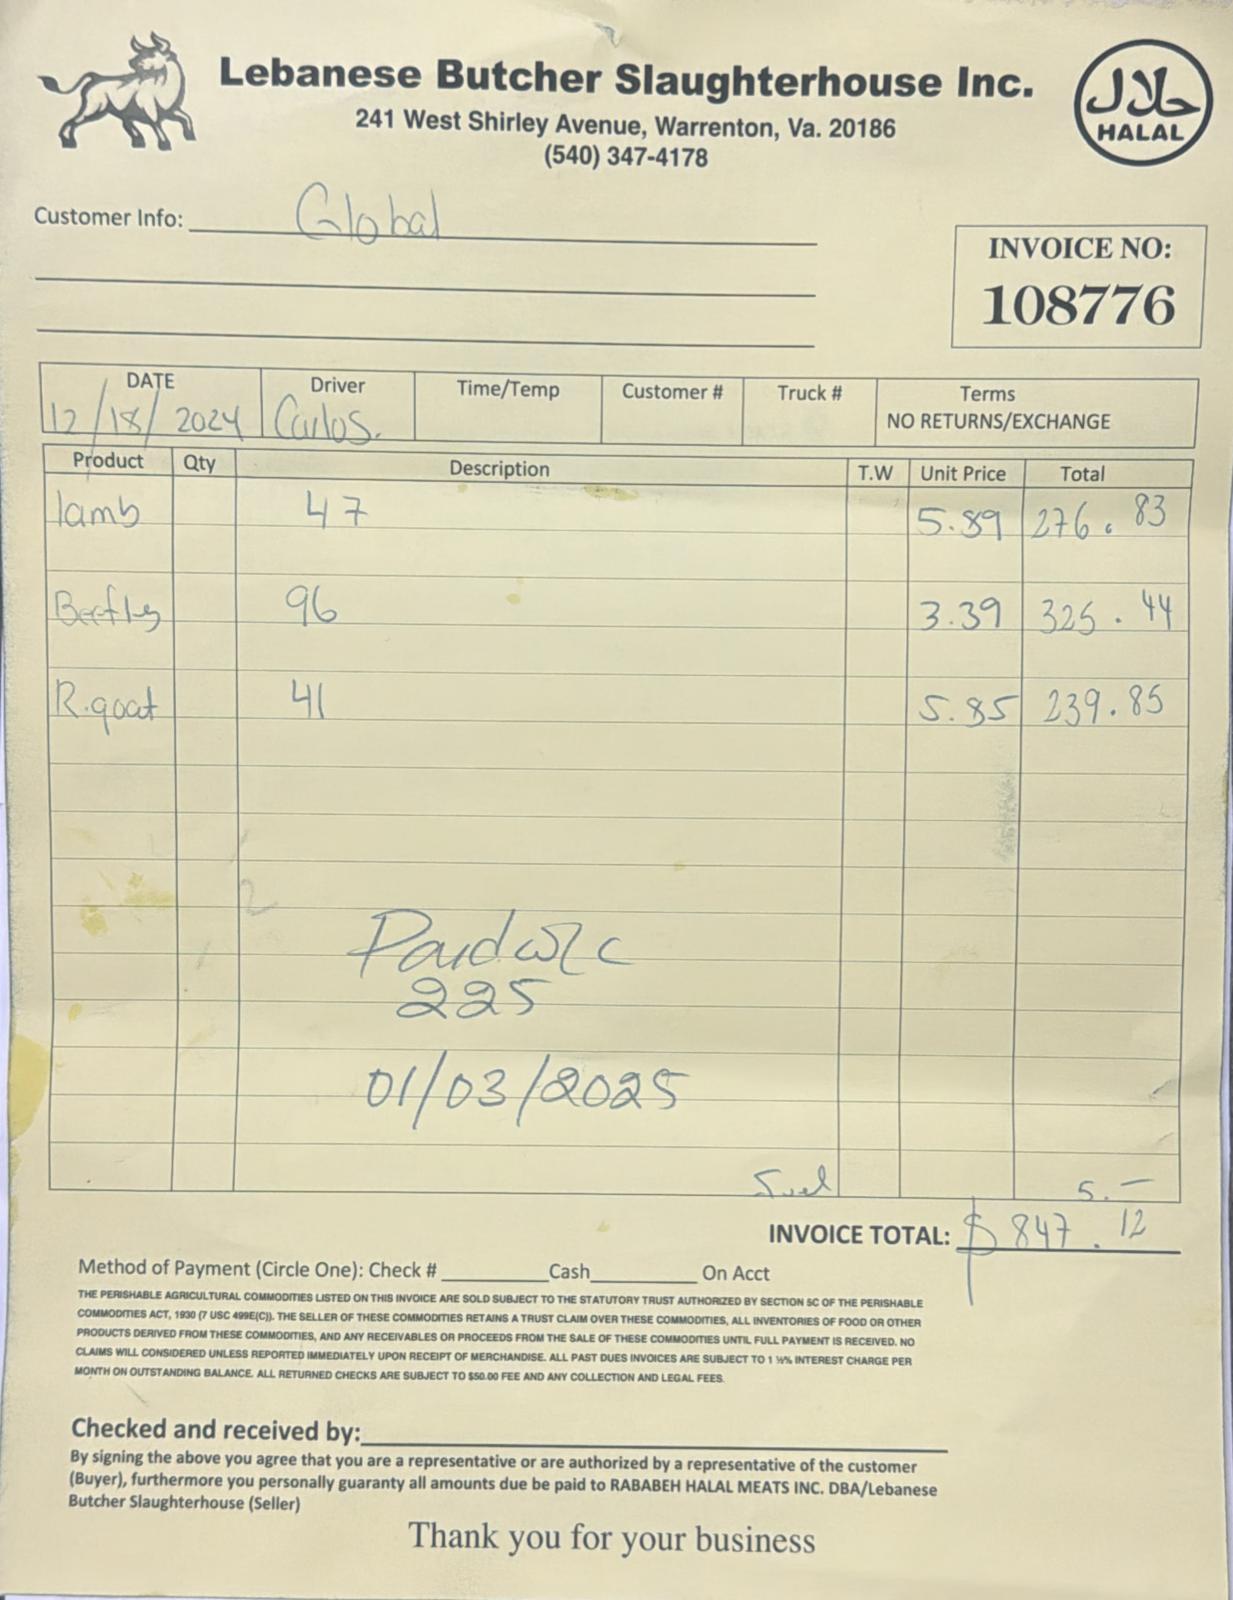 Lebanese Butcher Slaughterhouse Inc.
241 West Shirley Avenue, Warrenton, Va. 20186
(540) 347-4178
حلال
HALAL
Customer Info: Global
INVOICE NO:
108776
DATE Driver Time/Temp Customer # Truck # Terms
12/18/2024 Carlos. NO RETURNS/EXCHANGE
Product Qty Description T.W Unit Price Total
lamb 47 5.89 276.83
Beef 96 3.39 325.44
R.goat 41 5.85 239.85
2
Paid
225
01/03/2025
5.—
INVOICE TOTAL: $847.12
Method of Payment (Circle One): Check # Cash On Acct
THE PERISHABLE AGRICULTURAL COMMODITIES LISTED ON THIS INVOICE ARE SOLD SUBJECT TO THE STATUTORY TRUST AUTHORIZED BY SECTION 5C OF THE PERISHABLE
COMMODITIES ACT, 1930 (7 USC 499E(C)). THE SELLER OF THESE COMMODITIES RETAINS A TRUST CLAIM OVER THESE COMMODITIES, ALL INVENTORIES OF FOOD OR OTHER
PRODUCTS DERIVED FROM THESE COMMODITIES, AND ANY RECEIVABLES OR PROCEEDS FROM THE SALE OF THESE COMMODITIES UNTIL FULL PAYMENT IS RECEIVED. NO
CLAIMS WILL CONSIDERED UNLESS REPORTED IMMEDIATELY UPON RECEIPT OF MERCHANDISE. ALL PAST DUES INVOICES ARE SUBJECT TO 1 ½% INTEREST CHARGE PER
MONTH ON OUTSTANDING BALANCE. ALL RETURNED CHECKS ARE SUBJECT TO $50.00 FEE AND ANY COLLECTION AND LEGAL FEES.
Checked and received by:
By signing the above you agree that you are a representative or are authorized by a representative of the customer
(Buyer), furthermore you personally guaranty all amounts due be paid to RABABEH HALAL MEATS INC. DBA/Lebanese
Butcher Slaughterhouse (Seller)
Thank you for your business